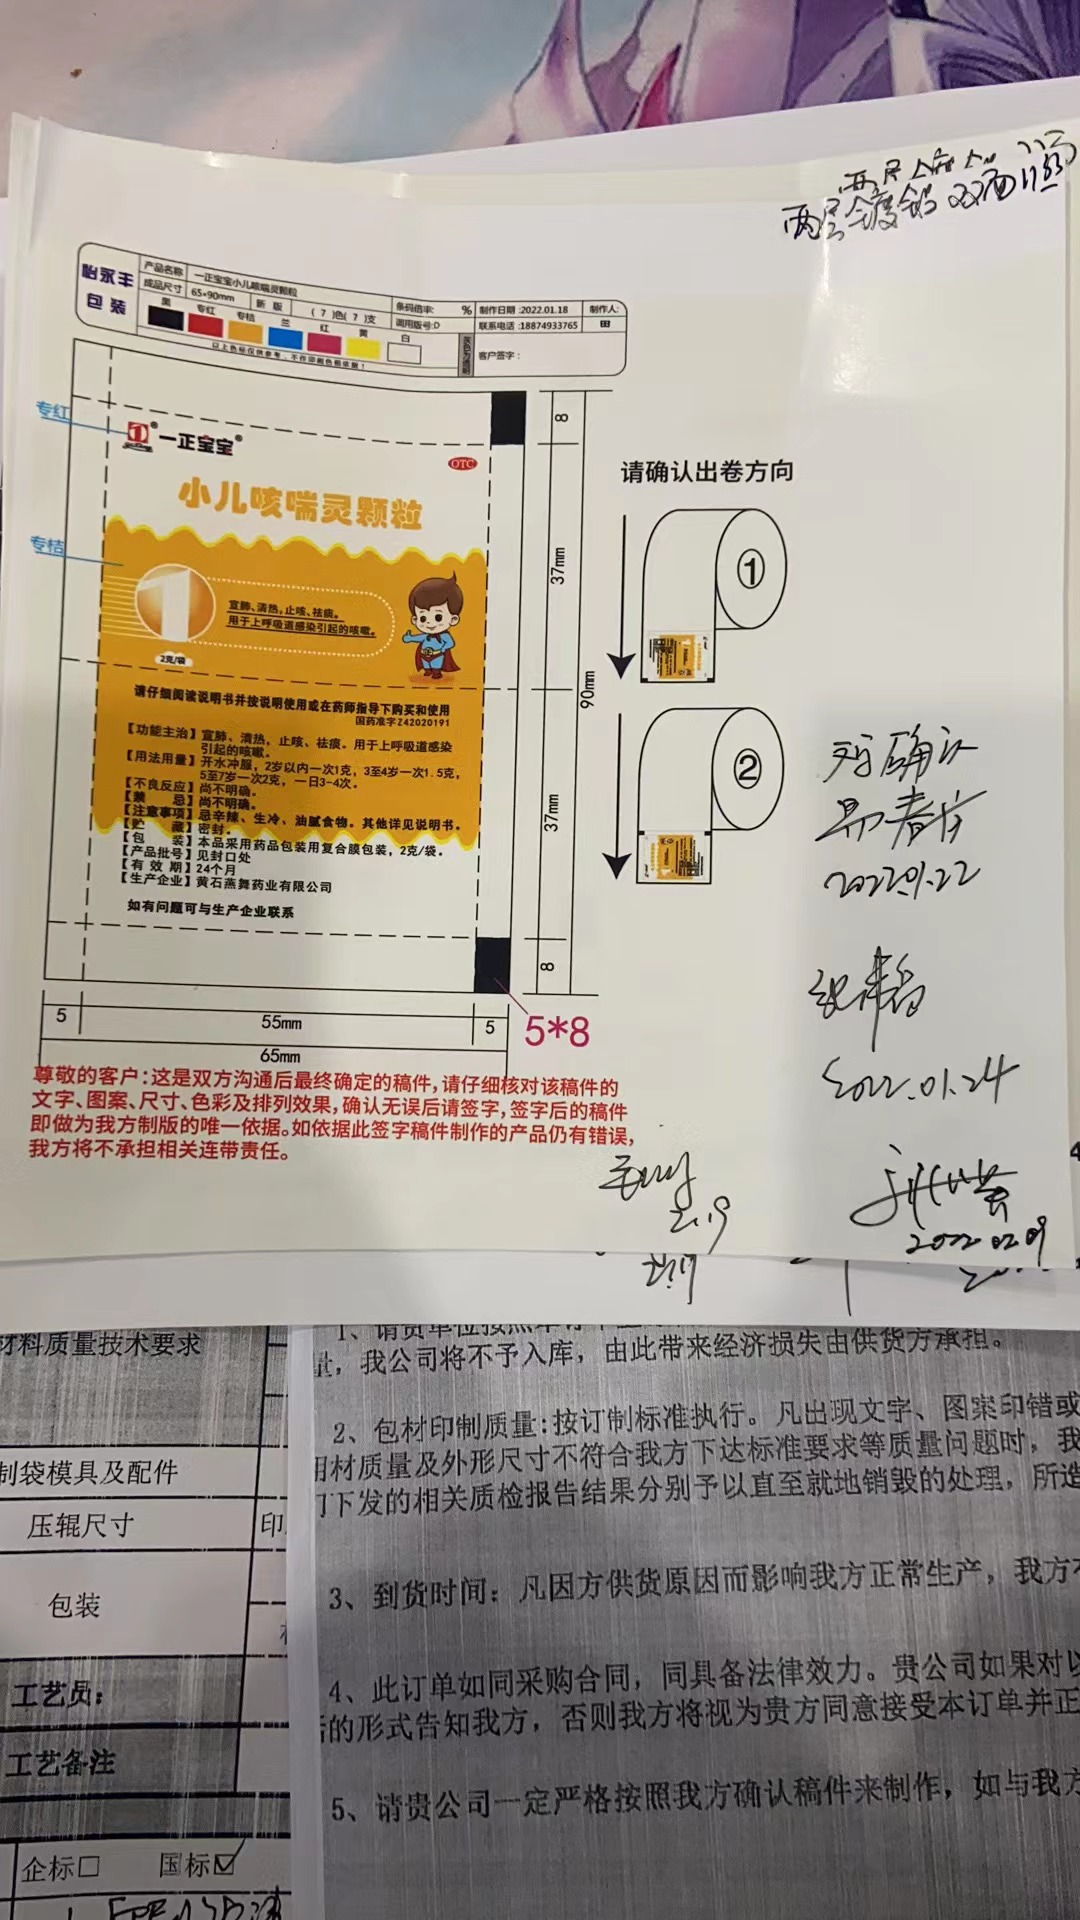 两层镀铝 双面印
怡永丰
包装
产品名称 一正宝宝小儿咳喘灵颗粒
成品尺寸 65*90mm 新 版 ( 7 )色( 7 )支 条码倍率: % 制作日期:2022.01.18 制作人:
黑 专红 专桔 兰 红 黄 白 调用版号:D 联系电话:18874933765 田
以上色标仅供参考,不作印刷色相依据!
灰色为透明
客户签字:
专红
一正宝宝®
OTC
小儿咳喘灵颗粒
专桔
1
宣肺、清热,止咳、祛痰。
用于上呼吸道感染引起的咳嗽。
2克/袋
请仔细阅读说明书并按说明使用或在药师指导下购买和使用
国药准字Z42020191
【功能主治】宣肺、清热,止咳、祛痰。用于上呼吸道感染
引起的咳嗽。
【用法用量】开水冲服,2岁以内一次1克,3至4岁一次1.5克,
5至7岁一次2克,一日3-4次。
【不良反应】尚不明确。
【禁 忌】尚不明确。
【注意事项】忌辛辣、生冷、油腻食物。其他详见说明书。
【贮 藏】密封。
【包 装】本品采用药品包装用复合膜包装,2克/袋。
【产品批号】见封口处
【有 效 期】24个月
【生产企业】黄石燕舞药业有限公司
如有问题可与生产企业联系
8
37mm
90mm
37mm
8
5 55mm 5
65mm
5*8
请确认出卷方向
①
②
确认
2022.01.22
2022.01.24
2.19
2022.02.09
尊敬的客户:这是双方沟通后最终确定的稿件,请仔细核对该稿件的
文字、图案、尺寸、色彩及排列效果,确认无误后请签字,签字后的稿件
即做为我方制版的唯一依据。如依据此签字稿件制作的产品仍有错误,
我方将不承担相关连带责任。
材料质量技术要求
制袋模具及配件
压辊尺寸 印
包装
工艺员:
工艺备注
企标□ 国标☑
量,我公司将不予入库,由此带来经济损失由供货方承担。
2、包材印制质量:按订制标准执行。凡出现文字、图案印错或
用材质量及外形尺寸不符合我方下达标准要求等质量问题时,我
门下发的相关质检报告结果分别予以直至就地销毁的处理,所造
3、到货时间:凡因方供货原因而影响我方正常生产,我方
4、此订单如同采购合同,同具备法律效力。贵公司如果对以
的形式告知我方,否则我方将视为贵方同意接受本订单并正
5、请贵公司一定严格按照我方确认稿件来制作,如与我方